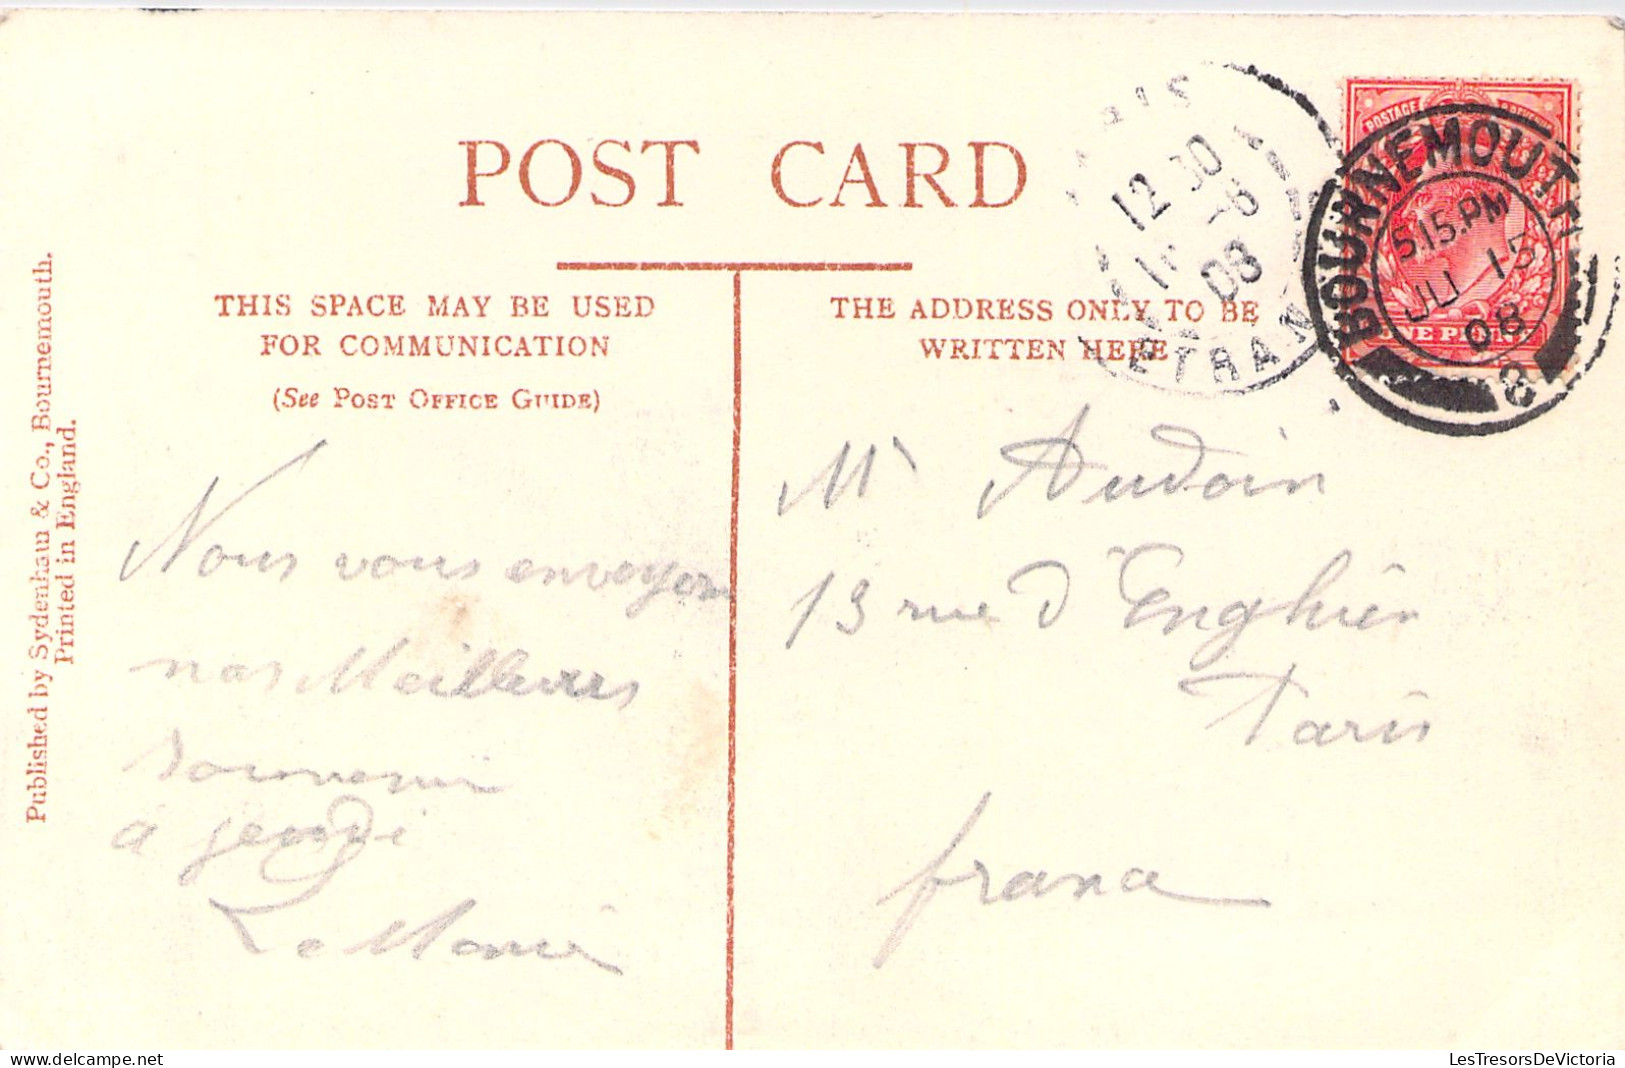 POST CARD
THIS SPACE MAY BE USED
FOR COMMUNICATION
(See POST OFFICE GUIDE)
THE ADDRESS ONLY TO BE
WRITTEN HERE
Published by Sydenham & Co., Bournemouth.
Printed in England.
12 30
08
ETRAN
POSTAGE
BOURNEMOUTH
5.15.PM
JU 15
08
8
Nous vous envoyons
nos Meilleurs
souvenir
a
Mr Audoin
13 rue d'Enghien
Paris
france
LesTresorsDeVictoria